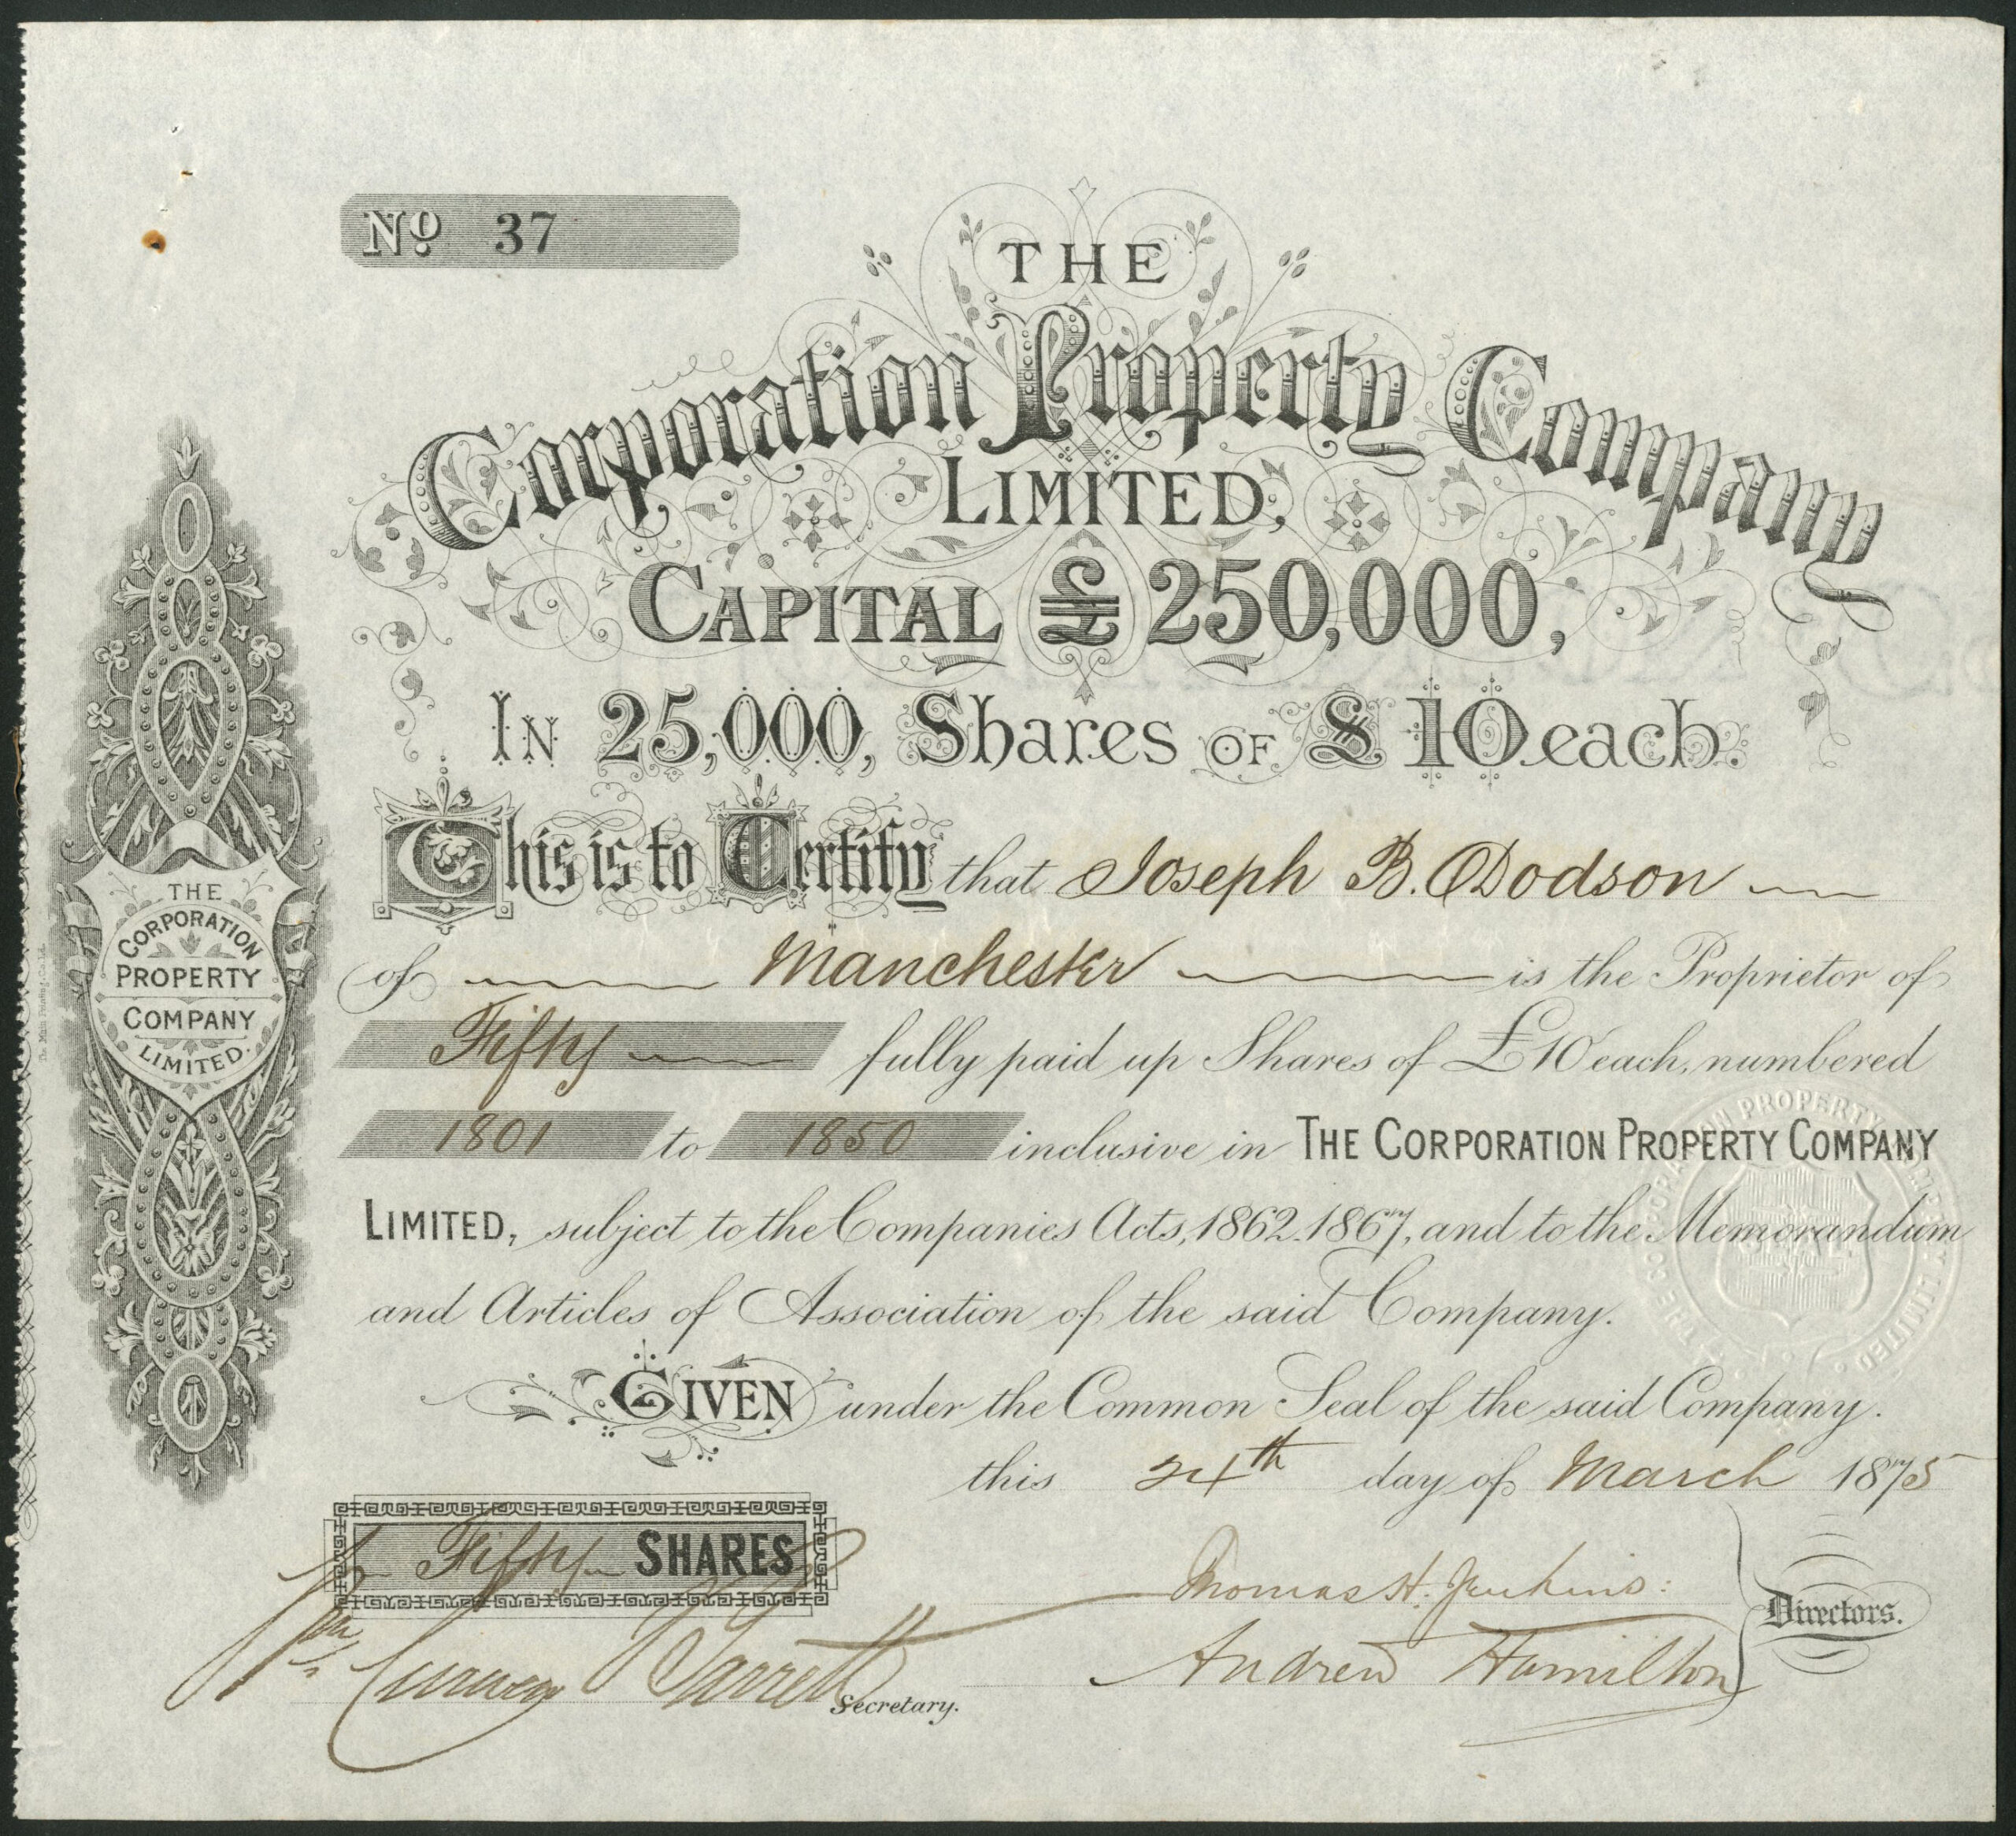 No. 37
THE
Corporation Property Company
LIMITED,
CAPITAL £250,000,
IN 25,000, Shares OF £10 each.
This is to Certify that Joseph B. Dodson
of Manchester is the Proprietor of
Fifty fully paid up Shares of £10 each, numbered
1801 to 1850 inclusive in THE CORPORATION PROPERTY COMPANY
LIMITED, subject to the Companies Acts, 1862.1867, and to the Memorandum
and Articles of Association of the said Company.
GIVEN under the Common Seal of the said Company.
this 24th day of March 1875
Fifty SHARES
Thomas H. Jenkins
Andrew Hamilton
Directors.
Garrett
Secretary.
THE
CORPORATION
PROPERTY
COMPANY
LIMITED.
THE CORPORATION PROPERTY COMPANY LIMITED